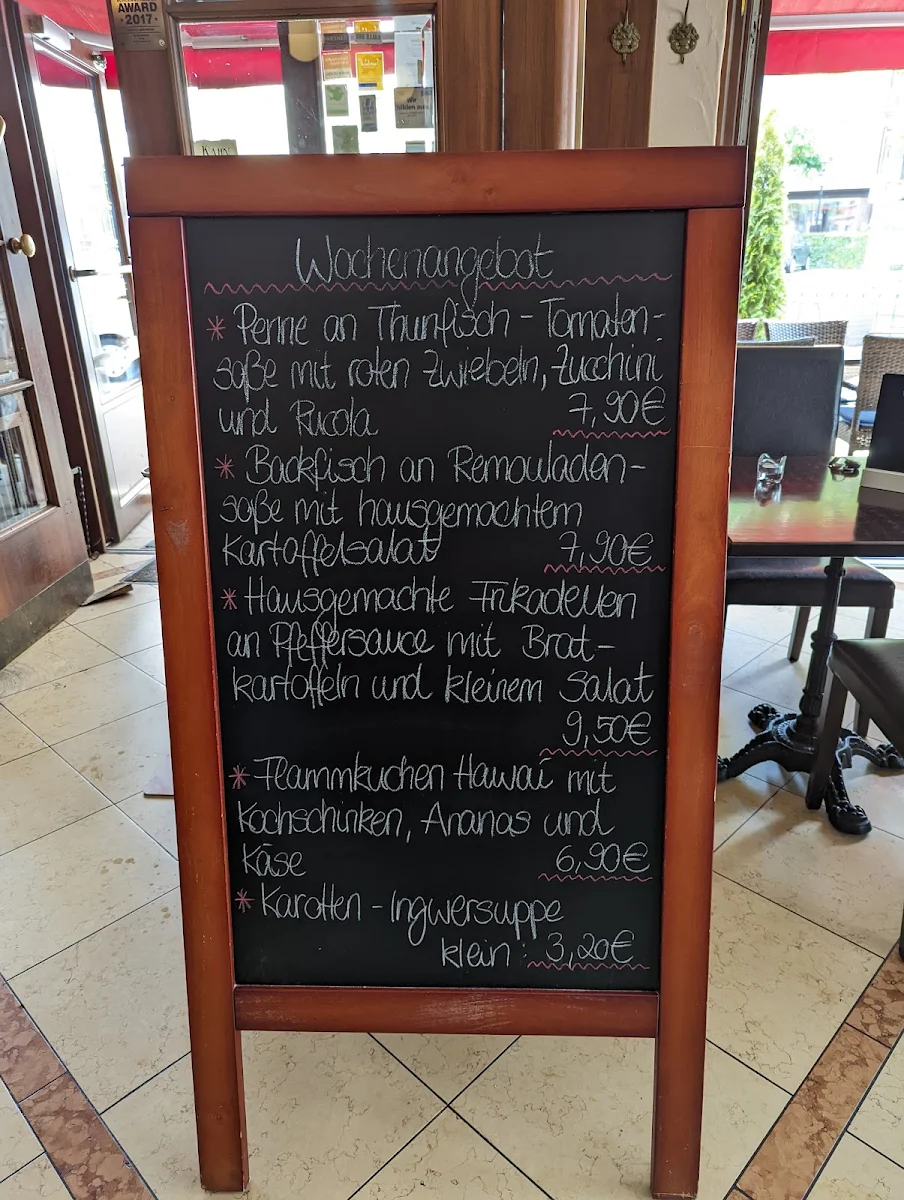 AWARD
•2017•
Wir
KAHN
Wochenangebot
* Penne an Thunfisch - Tomaten-
soße mit roten Zwiebeln, Zucchini
und Rucola 7,90€
* Backfisch an Remouladen-
soße mit hausgemachtem
Kartoffelsalat 7,90€
* Hausgemachte Frikadellen
an Pfeffersauce mit Brat-
kartoffeln und kleinem Salat
9,50€
* Flammkuchen Hawaï mit
Kochschinken, Ananas und
Käse 6,90€
* Karotten - Ingwersuppe
klein : 3,20€